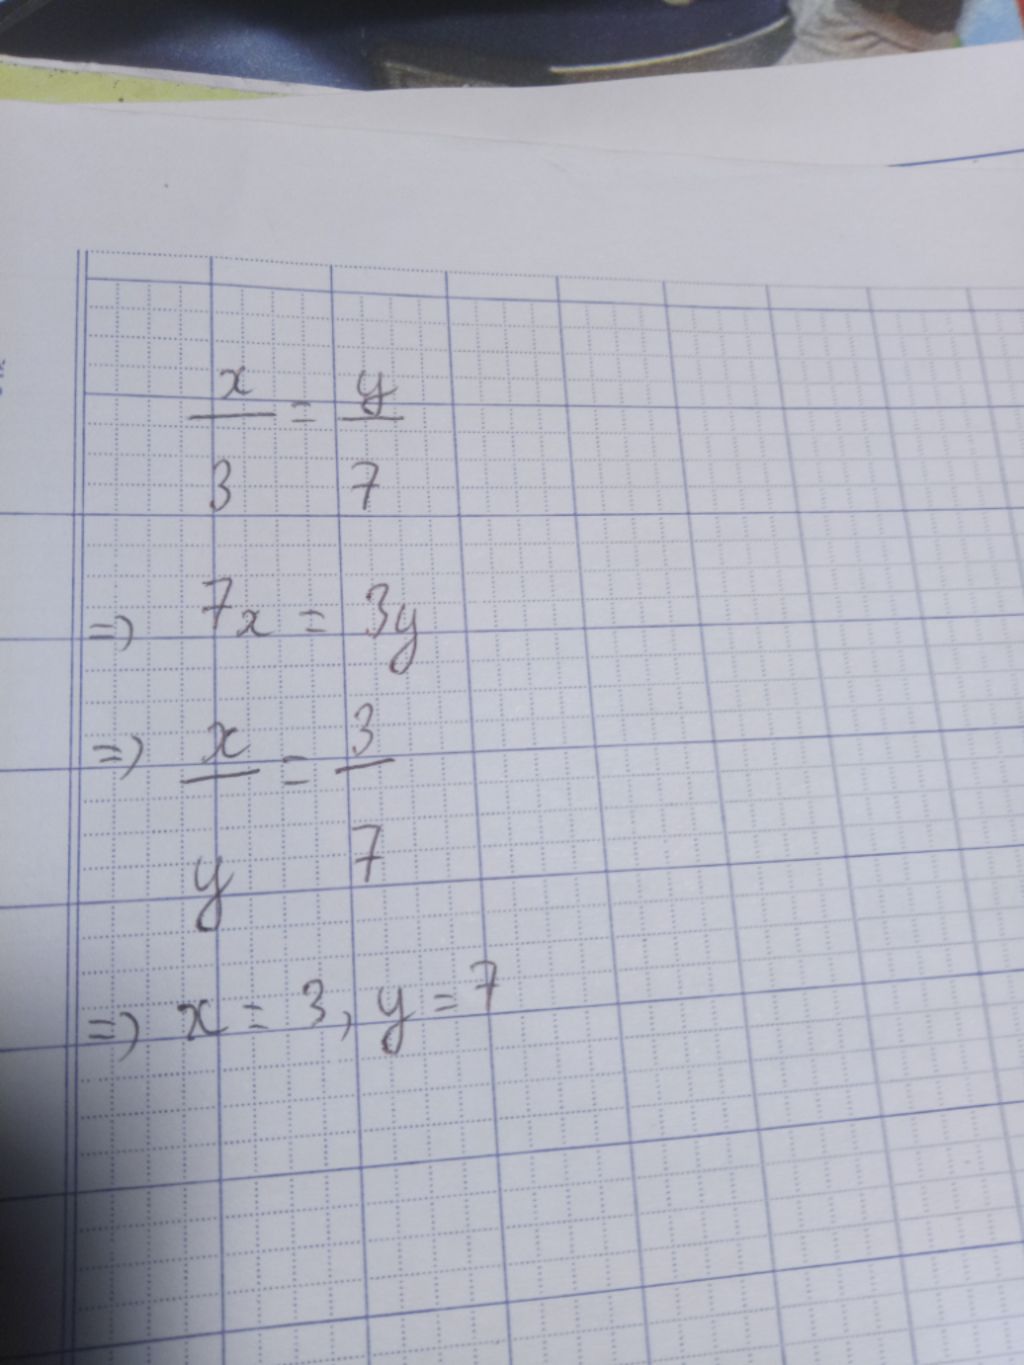 x/3 = y/7
=> 7x = 3y
=> x/y = 3/7
=> x = 3, y = 7